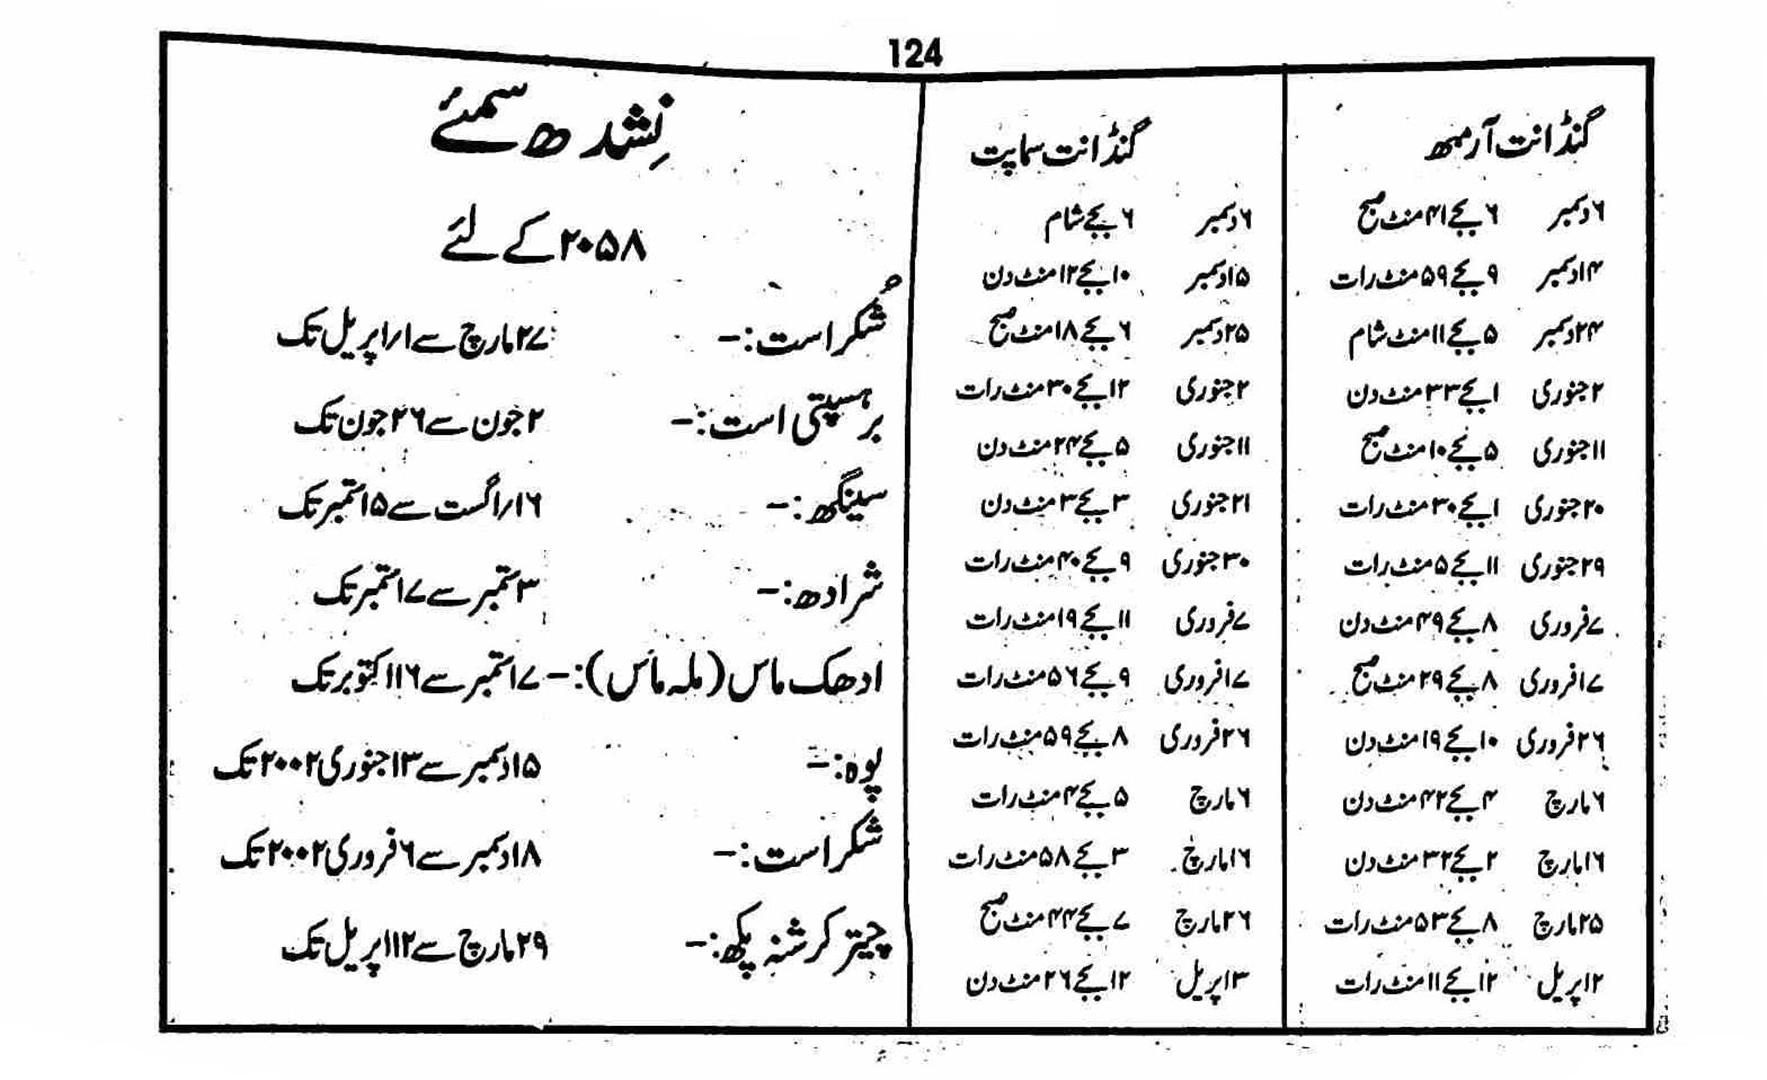 124
گنڈانت آرمبھ
۶ دسمبر ۶ بجے ۴۱ منٹ صبح
۱۴ دسمبر ۹ بجے ۵۹ منٹ رات
۲۴ دسمبر ۵ بجے ۱۱ منٹ شام
۲ جنوری ۱ بجے ۳۳ منٹ دن
۱۱ جنوری ۵ بجے ۱۰ منٹ صبح
۲۰ جنوری ۱ بجے ۳۰ منٹ رات
۲۹ جنوری ۱۱ بجے ۵ منٹ رات
۷ فروری ۸ بجے ۴۹ منٹ دن
۱۷ فروری ۸ بجے ۲۹ منٹ صبح
۲۶ فروری ۱۰ بجے ۱۹ منٹ دن
۶ مارچ ۴ بجے ۴۲ منٹ دن
۱۶ مارچ ۲ بجے ۳۲ منٹ دن
۲۵ مارچ ۸ بجے ۵۳ منٹ رات
۲ اپریل ۱۲ بجے ۱۱ منٹ رات
گنڈانت سماپت
۶ دسمبر ۶ بجے شام
۱۵ دسمبر ۱۰ بجے ۱۲ منٹ دن
۲۵ دسمبر ۶ بجے ۱۸ منٹ صبح
۲ جنوری ۱۲ بجے ۳۰ منٹ رات
۱۱ جنوری ۵ بجے ۲۴ منٹ دن
۲۱ جنوری ۳ بجے ۳ منٹ دن
۳۰ جنوری ۹ بجے ۴۰ منٹ رات
۷ فروری ۱۱ بجے ۱۹ منٹ رات
۱۷ فروری ۹ بجے ۵۶ منٹ رات
۲۶ فروری ۸ بجے ۵۹ منٹ رات
۶ مارچ ۵ بجے ۴ منٹ رات
۱۶ مارچ ۳ بجے ۵۸ منٹ رات
۲۶ مارچ ۷ بجے ۴۴ منٹ صبح
۳ اپریل ۱۲ بجے ۲۶ منٹ دن
نِشدھ سمئے
۲۰۵۸ کے لئے
شُکراست:- ۲۷ مارچ سے ۱/اپریل تک
برہسپتی است:- ۲ جون سے ۲۶ جون تک
سینگھ:- ۱۶/اگست سے ۱۵ ستمبر تک
شرادھ:- ۳ ستمبر سے ۱۷ ستمبر تک
ادھک ماس (ملہ ماس):- ۱۷ ستمبر سے ۱۶ اکتوبر تک
پوہ:- ۱۵ دسمبر سے ۱۳ جنوری ۲۰۰۲ تک
شکراست:- ۱۸ دسمبر سے ۶ فروری ۲۰۰۲ تک
چیتر کرشنہ پکھ:- ۲۹ مارچ سے ۱۲ اپریل تک